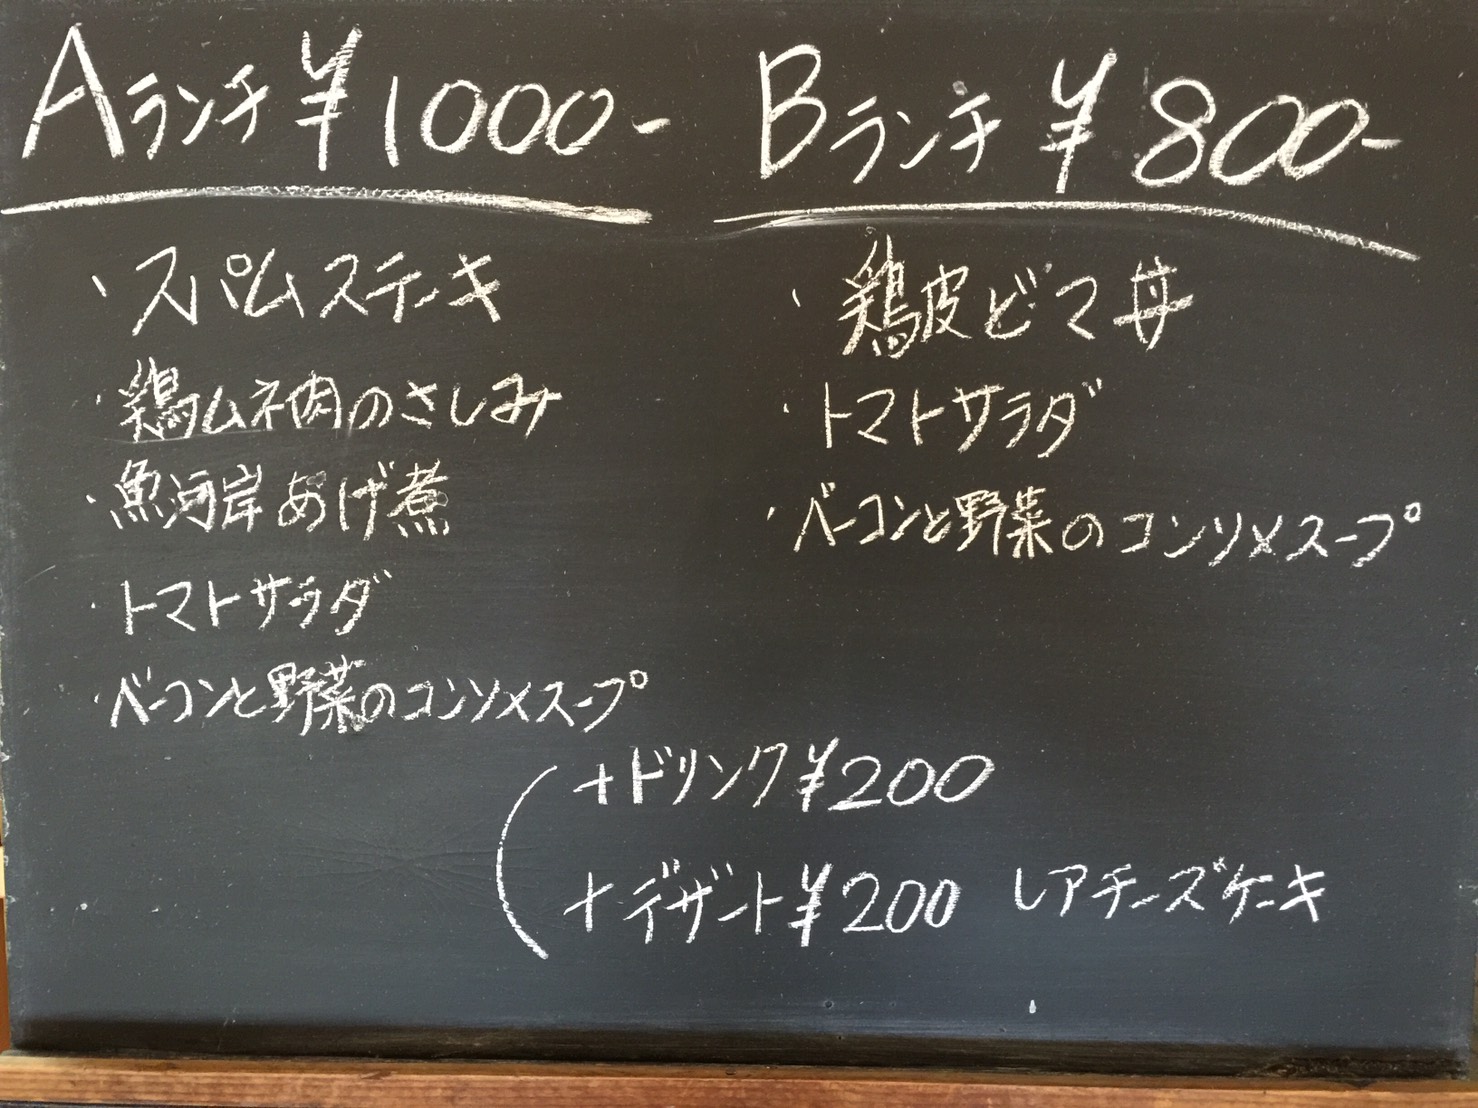 Aランチ ¥1000-
・スパムステーキ
・鶏ムネ肉のさしみ
・魚河岸あげ煮
・トマトサラダ
・ベーコンと野菜のコンソメスープ
Bランチ ¥800-
・鶏皮どマ丼
・トマトサラダ
・ベーコンと野菜のコンソメスープ
+ドリンク¥200
+デザート¥200 レアチーズケーキ